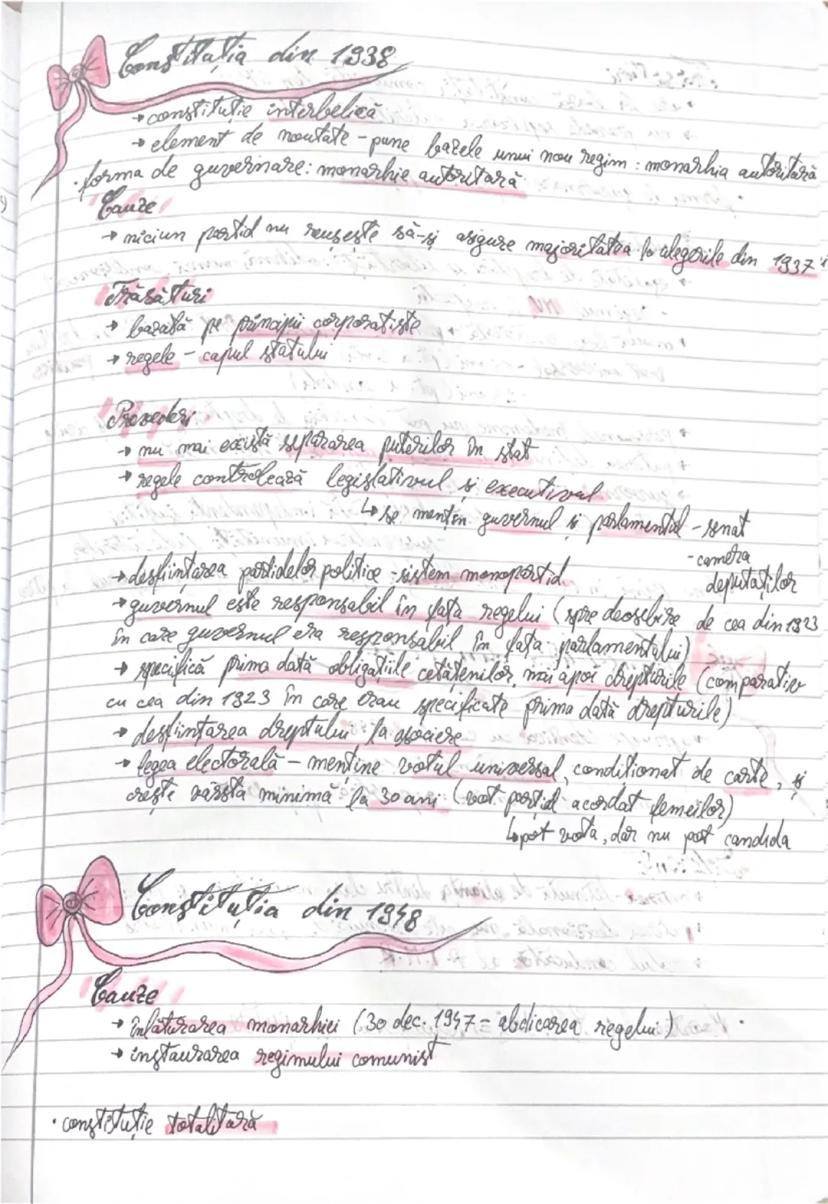 Constituția din 1938
→ constituție interbelică
→ element de noutate - pune bazele unui nou regim : monarhia autoritară
· forma de guvernare: monarhie autoritară
Cauze
→ niciun partid nu reușește să-și asigure majoritatea la alegerile din 1937
Trăsături
→ bazată pe principii corporatiste
→ regele - capul statului
Prevederi
→ nu mai există separarea puterilor în stat
→ regele controlează legislativul și executivul
↳ se mențin guvernul și parlamentul - senat
- camera
deputaților
→ desființarea partidelor politice - sistem monopartid
→ guvernul este responsabil în fața regelui (spre deosebire de cea din 1923
în care guvernul era responsabil în fața parlamentului)
→ specifică prima dată obligațiile cetățenilor, mai apoi drepturile (comparativ
cu cea din 1923 în care erau specificate prima dată drepturile)
→ desființarea dreptului la asociere
→ legea electorală - menține votul universal, condiționat de carte, și
crește vârsta minimă la 30 ani (vot parțial acordat femeilor)
↳ pot vota, dar nu pot candida
Constituția din 1948
Cauze
→ înlăturarea monarhiei (30 dec. 1947 = abdicarea regelui)
→ instaurarea regimului comunist
· constituție totalitară